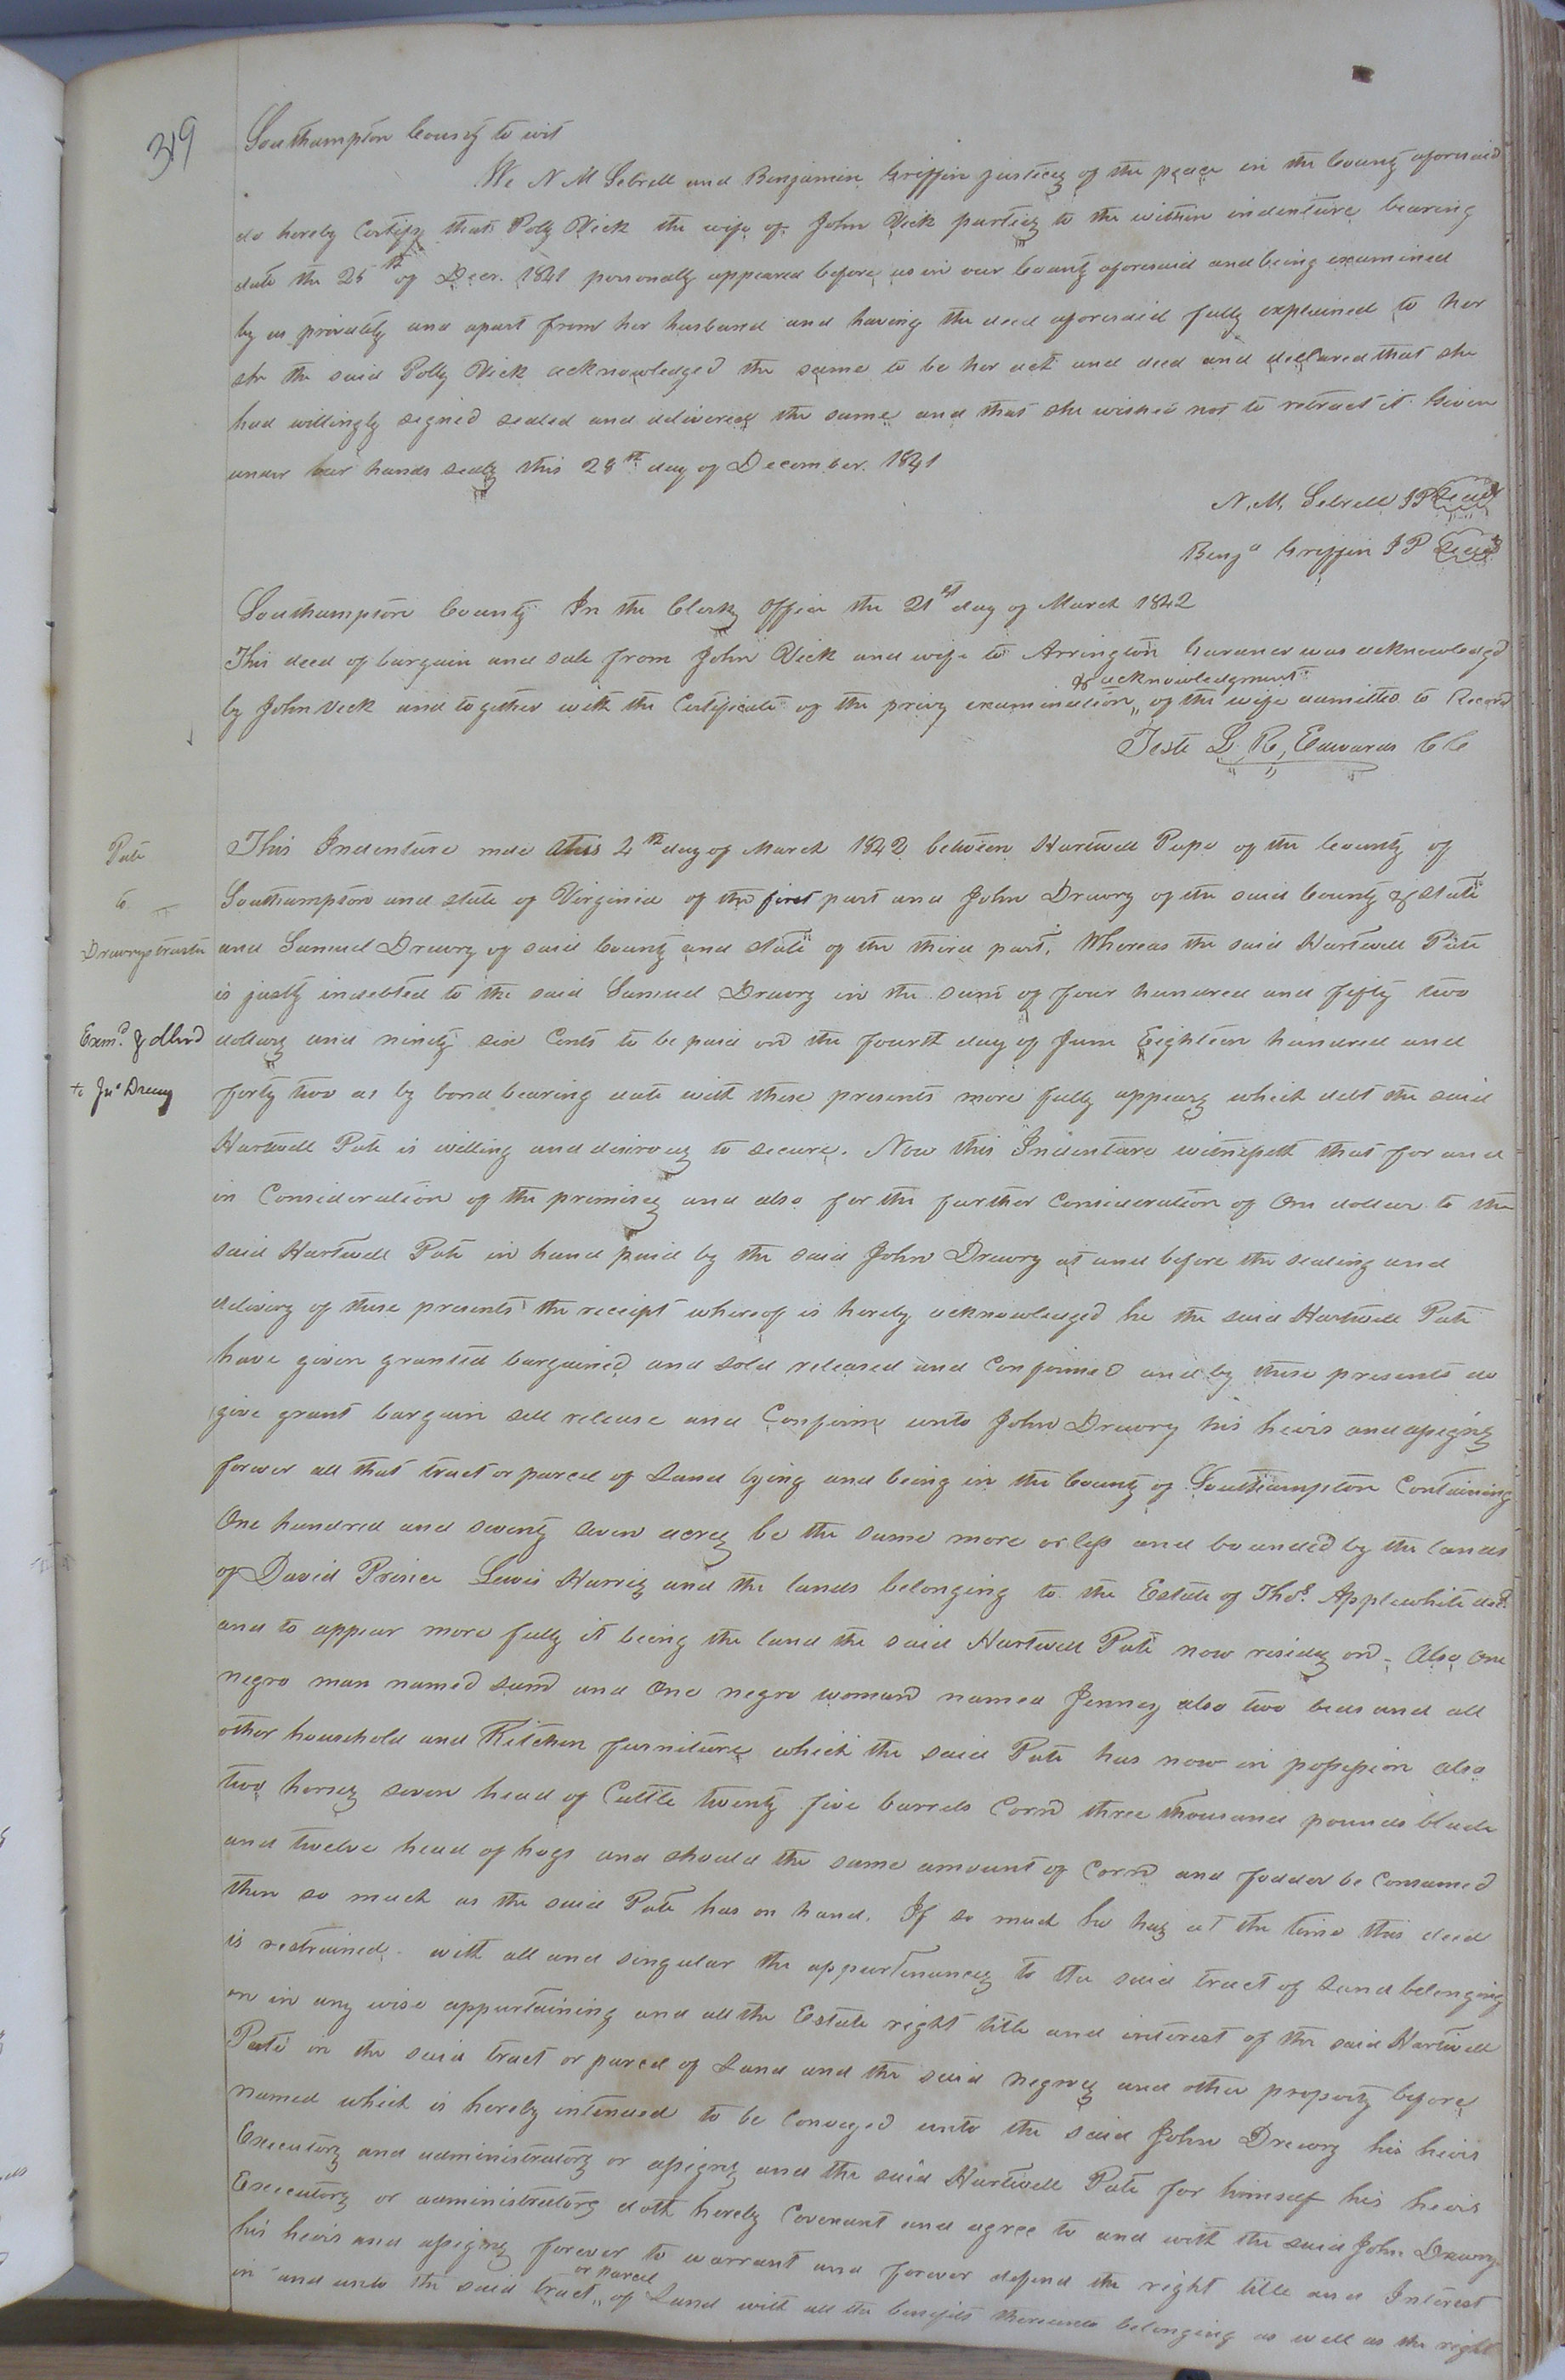 319
Southampton County to wit
We N M Sebrell and Benjamin Griffin justices of the peace in the County aforesaid
do hereby Certify that Polly Vick the wife of John Vick parties to the within indenture bearing
date the 25th of Decr. 1841 personally appeared before us in our County aforesaid and being examined
by us privately and apart from her husband and having the deed aforesaid fully explained to her
she the said Polly Vick acknowledged the same to be her act and deed and declared that she
had willingly signed sealed and delivered the same and that she wished not to retract it Given
under our hands seals this 28th day of December 1841
N. M. Sebrell JP Seal
Benja Griffin JP Seal
Southampton County In the Clerks Office the 21st day of March 1842
This deed of bargain and sale from John Vick and wife to Arrington Gardner was acknowledgd
& acknowledgment
by John Vick and together with the Certificate of the privy examination of the wife admitted to Record
Teste L. R. Edwards CC
Pate
to
Drewrys trustee
Exmd & dlvrd
to Jno Drewry
This Indenture mde this 4th day of March 1842 between Hartwell Pape of the County of
Southampton and state of Virginia of the first part and John Drewry of the said County & State
and Samuel Drewry of said County and state of the third part. Whereas the said Hartwell Pate
is justly indebted to the said Samuel Drewry in the sum of four hundred and fifty two
dollars and ninety six Cents to be paid on the fourth day of June Eighteen hundred and
forty two as by bond bearing date with these presents more fully appears which debt the said
Hartwell Pate is willing and desirous to secure. Now this Indenture witnesseth that for and
in Consideration of the premises and also for the further Consideration of One dollar to the
said Hartwell Pate in hand paid by the said John Drewry at and before the sealing and
delivery of these presents the receipt whereof is hereby acknowledged he the said Hartwell Pate
have given granted bargained and sold released and Confirmed and by these presents do
give grant bargain sell release and Confirm unto John Drewry his heirs and assigns
forever all that tract or parcel of Land lying and being in the County of Southampton Containing
One hundred and seventy seven acres be the same more or less and bounded by the lands
of David Prince Lewis Harris and the lands belonging to the Estate of Thos. Applewhite decd.
and to appear more fully it being the land the said Hartwell Pate now resides on - Also One
negro man named Sam and One negro woman named Jenney also two beds and all
other household and Kitchen furniture which the said Pate has now in possession also
two horses seven head of Cattle twenty five barrels Corn three thousand pounds blade
and twelve head of hogs and should the same amount of Corn and fodder be Consumed
then so much as the said Pate has on hand. If so much he has at the time this deed
is restrained. with all and singular the appurtenances to the said tract of Land belonging
or in any wise appurtaining and all the Estate right title and interest of the said Hartwell
Pate in the said tract or parcel of Land and the said negroes and other property before
named which is hereby intended to be Conveyed unto the said John Drewry his heirs
Executors and administrators or assigns and the said Hartwell Pate for himself his heirs
Executors or administrators doth hereby Covenant and agree to and with the said John Drewry
his heirs and assigns forever to warrant and forever defend the right title and Interest
or parcel
in and unto the said tract of Land with all the benefits thereunto belonging as well as the right